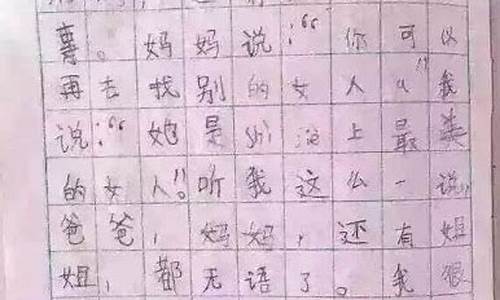 。妈妈说:“你可以
再去找别的女人a”我
说:“她是shì 上最美
的女人”。听我这么一说,
爸爸,妈妈,还有姐
姐,都无语了。我狠